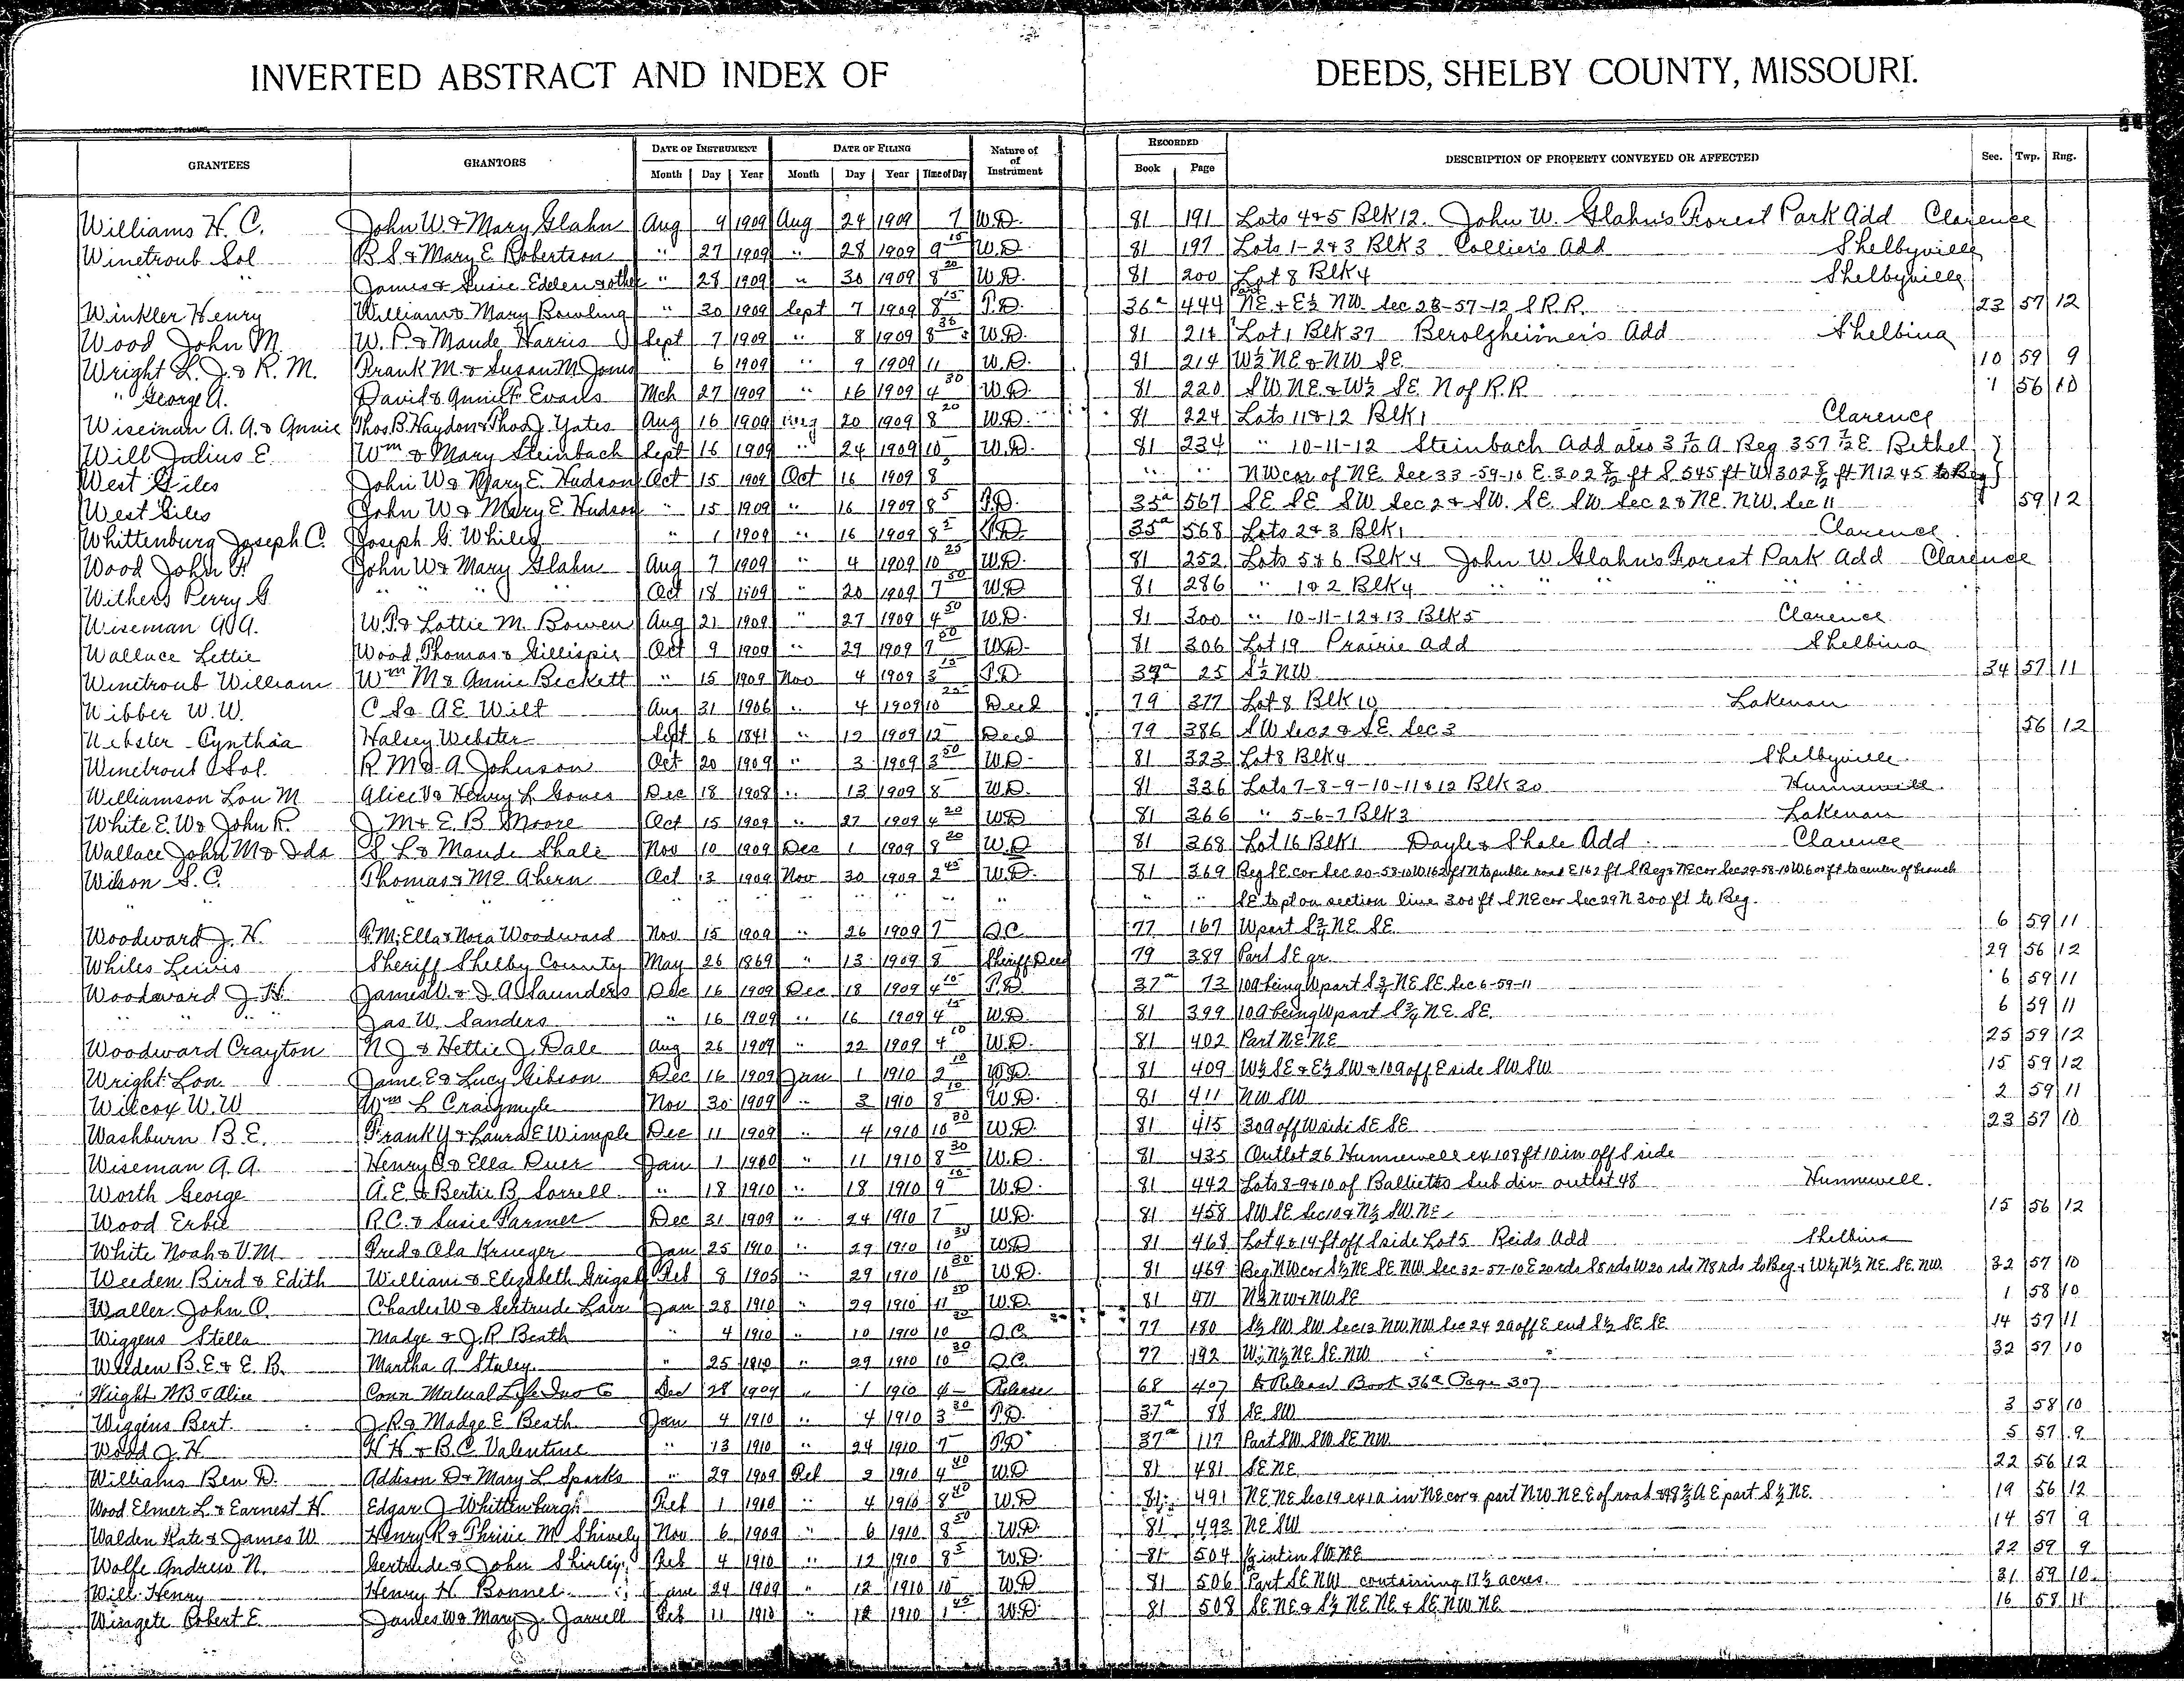 INVERTED ABSTRACT AND INDEX OF DEEDS, SHELBY COUNTY, MISSOURI.
GRANTEES GRANTORS DATE OF INSTRUMENT DATE OF FILING Nature of of Instrument RECORDED DESCRIPTION OF PROPERTY CONVEYED OR AFFECTED Sec. Twp. Rng.
Month Day Year Month Day Year Time of Day Book Page
Williams H. C. John W & Mary Glahn Aug 9 1909 Aug 24 1909 7 W.D. 81 191 Lots 4 & 5 Blk 12. John W. Glahn's Forest Park Add Clarence
Winetroub Sol B S & Mary E Robertson " 27 1909 " 28 1909 9 15 W.D. 81 197 Lots 1-2 & 3 Blk 3 Collier's Add Shelbyville
" " James & Susie Edelen & other " 28 1909 " 30 1909 8 20 W.D. 81 200 Lot 8 Blk 4 Shelbyville
Winkler Henry William & Mary Bowling " 30 1909 Sept 7 1909 8 15 T.D. 36a 444 Part NE & E½ NW. Sec 23-57-12 S R.R. 23 57 12
Wood John M. W. P & Maude Harris Sept 7 1909 " 8 1909 8 30 W.D. 81 211 Lot 1 Blk 37 Berolzheimer's Add Shelbina
Wright L. J. & R. M. Frank M. & Susan M Jones " 6 1909 " 9 1909 11 W.D. 81 214 W½ NE & NW SE 10 59 9
" George A. David & Annie F Evans Mch 27 1909 " 16 1909 4 30 W.D. 81 220 SW NE & W½ SE N of R.R. 1 56 10
Wiseman A. A. & Annie Thos. B. Haydon & Thos J. Yates Aug 16 1909 Aug 20 1909 8 20 W.D. 81 224 Lots 11 & 12 Blk 1 Clarence
Will Julius E. Wm & Mary Steinbach Sept 16 1909 " 24 1909 10 W.D. 81 234 " 10-11-12 Steinbach Add also Beg Bethel
West Giles John W & Mary E. Hudson Oct 15 1909 Oct 16 1909 8 " " NW cor of NE. Sec 33-59-10 E. 302 ft S 545 ft W 302 ft N 1245 to Beg
West Giles John W & Mary E Hudson " 15 1909 " 16 1909 8 5 T.D. 35a 567 SE SE SW Sec 2 & SW. SE. SW Sec 2 & NE. NW. Sec 11 59 12
Whittenburg Joseph C. Joseph G. Whiles " 1 1909 " 16 1909 8 5 T.D. 35a 568 Lots 2 & 3 Blk 1 Clarence
Wood John F. John W & Mary Glahn Aug 7 1909 " 4 1909 10 25 W.D. 81 252 Lots 5 & 6 Blk 4 John W. Glahn's Forest Park Add Clarence
Withers Perry G. " " " Oct 18 1909 " 20 1909 7 50 W.D 81 286 " 1 & 2 Blk 4 " " " " "
Wiseman A A. W.P. & Lottie M. Bowen Aug 21 1909 " 27 1909 4 50 W.D. 81 300 " 10-11-12 & 13 Blk 5 Clarence
Wallace Lettie Wood, Thomas & Gillispie Oct 9 1909 " 29 1909 7 50 W.D. 81 306 Lot 19 Prairie Add Shelbina
Winetroub William Wm M & Annie Beckett " 15 1909 Nov 4 1909 3 15 T.D 25 S½ NW 34 57 11
Wibber W. W. C S & A E Wilt Aug 31 1906 " 4 1909 10 25 Deed 79 377 Lot 8 Blk 10 Lakenan
Webster Cynthia Halsey Webster Sept 6 1841 " 12 1909 12 Deed 79 386 SW Sec 2 & SE. Sec 3 56 12
Winetrout Sol. R M & A Johnson Oct 20 1909 " 3 1909 3 50 W.D. 81 323 Lot 8 Blk 4 Shelbyville
Williamson Lou M Alice V & Henry L Gones Dec 18 1908 " 13 1909 8 W.D. 81 336 Lots 7-8-9-10-11 & 12 Blk 30 Hunnewell.
White E. W & John R. J M & E. B Moore Oct 15 1909 " 27 1909 4 20 W.D 81 366 " 5-6-7 Blk 3 Lakenan
Wallace John M & Ida S L & Maude Shale Nov 10 1909 Dec 1 1909 8 20 W.D 81 368 Lot 16 Blk 1 Dayle & Shale Add Clarence
Wilson S. C. Thomas & M E Ahern Oct 13 1909 Nov 30 1909 2 45 W.D. 81 369 Beg SE cor Sec 20-58-10 W 162 ft N to public road E 162 ft S Beg & NE cor Sec 29-58-10 W 600 ft to center of branch
" " " " " SE to pt on section line 300 ft S NE cor Sec 29 N 300 ft to Beg.
Woodward J. H. Ella & Nora Woodward Nov 15 1909 " 26 1909 7 Q.C. 77 167 W part S¾ NE SE 6 59 11
Whiles Lewis Sheriff Shelby County May 26 1869 " 13 1909 8 Sheriff Deed 79 389 Part SE qr. 29 56 12
Woodward J. H. James W. & J. A. Saunders Dec 16 1909 Dec 18 1909 4 10 T.D. 37a 73 10a being W part S¾ NE SE Sec 6-59-11 6 59 11
" " Jas W. Sanders " 16 1909 " 16 1909 4 15 W.D. 81 399 10a being W part S¾ NE. SE. 6 59 11
Woodward Crayton N J & Hettie J. Dale Aug 26 1909 " 22 1909 4 10 W.D. 81 402 Part NE NE 25 59 12
Wright Lon Jame E & Lucy Gibson Dec 16 1909 Jan 1 1910 2 10 W.D. 81 409 W½ SE & E½ SW & 10a off E side SW SW 15 59 12
Wilcox W. W Wm L Craigmyle Nov 30 1909 " 3 1910 8 10 W.D. 81 411 NW SW 2 59 11
Washburn B E. Frank Y & Laura E Wimple Dec 11 1909 " 4 1910 10 30 W.D. 81 415 30a off W side SE SE 23 57 10
Wiseman A. A. Henry O & Ella Duer Jan 1 1910 " 11 1910 8 30 W.D. 81 435 Outlot 26 Hunnewell ex 108 ft 10 in off S side
Worth George A. E. & Bertie B. Sorrell " 18 1910 " 18 1910 9 10 W.D. 81 442 Lots 8-9 & 10 of Balliett's Sub div outlot 48 Hunnewell.
Wood Erbie R. C. & Susie Farmer Dec 31 1909 " 24 1910 7 W.D. 81 458 SW SE Sec 10 & N½ SW. NE 15 56 12
White Noah & V. M. Fred & Ola Krueger Jan 25 1910 " 29 1910 10 30 W.D 81 468 Lot 4 & 14 ft off S side Lot 5 Reids Add Shelbina
Weeden Bird & Edith William & Elizabeth Grigsby Feb 8 1905 " 29 1910 10 30 W.D. 81 469 Beg NW cor S½ NE SE NW Sec 32-57-10 E 20 rds S 8 rds W 20 rds N 8 rds to Beg & W½ N½ NE. SE. NW. 32 57 10
Waller John O. Charles W & Gertrude Lair Jan 28 1910 " 29 1910 11 30 W.D. 81 471 N½ NW & NW SE 1 58 10
Wiggens Stella Madge & J. R Beath " 4 1910 " 10 1910 10 30 Q.C. 77 180 S½ SW SW Sec 13 NW NW Sec 24 2a off E end S½ SE SE 14 57 11
Weeden B. E. & E. B. Martha A Staley " 25 1910 " 29 1910 10 30 Q.C. 77 192 W½ N½ NE SE. NW 32 57 10
Wright M B & Alice Conn Mutual Life Ins Co Dec 28 1909 " 1 1910 4 Release 68 407 to Release Book 36a Page 307
Wiggins Bert. J. R & Madge E. Beath Jan 4 1910 " 4 1910 3 30 T.D. 37a 98 SE SW 3 58 10
Wood J. H. H H & B. C. Valentine " 13 1910 " 24 1910 7 T.D 37a 117 Part SW. SW SE NW 5 57 9
Williams Ben D. Addison D & Mary L Sparks " 29 1909 Feb 2 1910 4 40 W.D 81 481 SE NE 22 56 12
Wood Elmer L. & Earnest H. Edgar J Whittenburgh Feb 1 1910 " 4 1910 8 40 W.D 81 491 NE NE Sec 19 ex 1a in NE cor & part NW. NE E of road & 48¾ A E part S½ NE. 19 56 12
Walden Kate & James W. Henry R & Phrinie M Shively Nov 6 1909 " 6 1910 8 50 W.D. 81 493 NE SW 14 57 9
Wolfe Andrew N. Gertrude & John Shirley Feb 4 1910 " 12 1910 8 5 W.D. 81 504 ½ int in SW NE 22 59 9
Will Henry Henry H. Bonnel Jan 24 1909 " 12 1910 10 W.D 81 506 Part SE NW containing 17½ acres. 31 59 10
Wingete Robert E. James W & Mary J. Jarrell Feb 11 1910 " 12 1910 1 45 W.D. 81 508 SE NE & S½ NE NE & SE NW NE 16 58 11